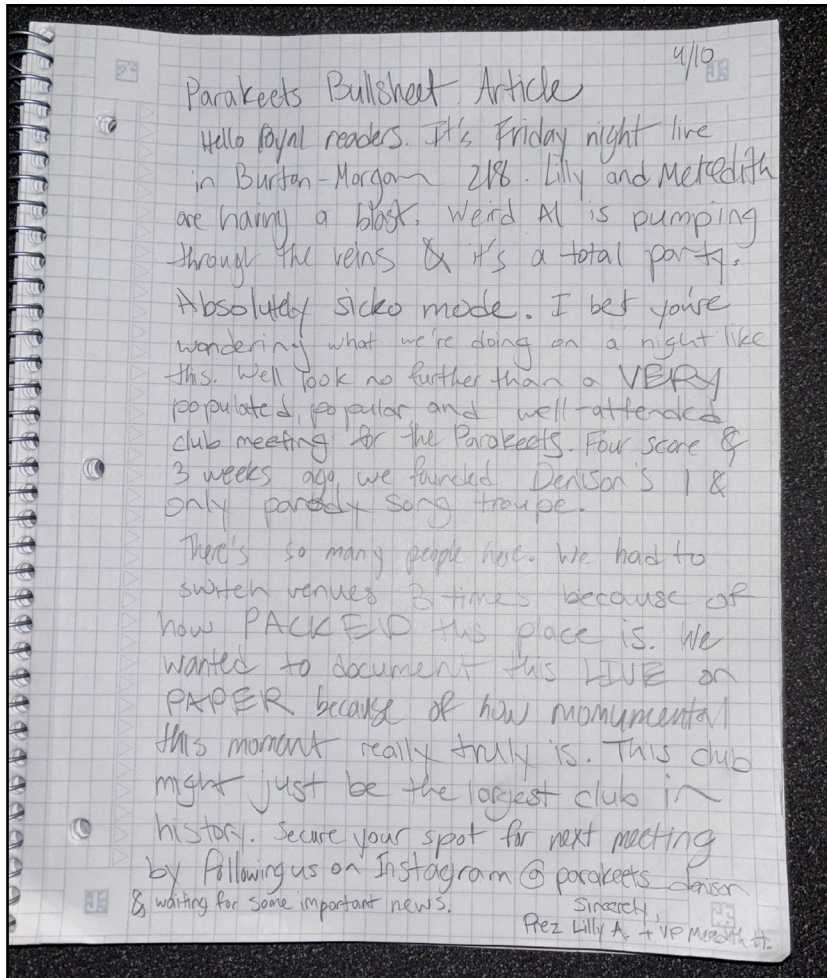 4/10
Parakeets Bullsheet Article
Hello loyal readers. It's Friday night live
in Burton-Morgan 218. Lilly and Meredith
are having a blast. Weird Al is pumping
through the veins & it's a total party.
Absolutely sicko mode. I bet you're
wondering what we're doing on a night like
this. Well look no further than a VERY
populated, popular and well-attended
club meeting for the Parakeets. Four score &
3 weeks ago, we founded Denison's 1 &
only parody song troupe.
There's so many people here. We had to
switch venues 3 times because of
how PACKED this place is. We
wanted to document this LIVE on
PAPER because of how monumental
this moment really truly is. This club
might just be the largest club in
history. Secure your spot for next meeting
by following us on Instagram @ parakeets_denison
& waiting for some important news.
Sincerely,
Prez Lilly A. + VP Meredith H.